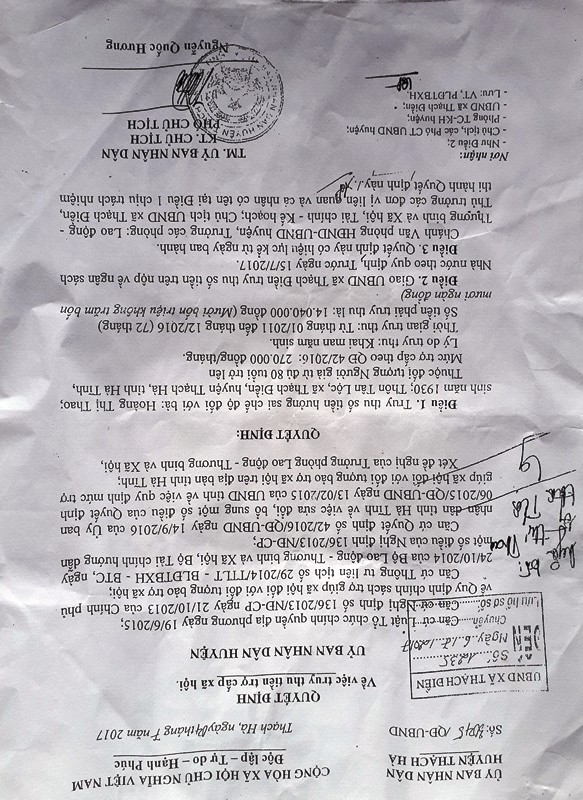 ỦY BAN NHÂN DÂN
HUYỆN THẠCH HÀ
CỘNG HÒA XÃ HỘI CHỦ NGHĨA VIỆT NAM
Độc lập – Tự do – Hạnh Phúc
Số: /QĐ-UBND
Thạch Hà, ngày tháng 7 năm 2017
QUYẾT ĐỊNH
Về việc truy thu tiền trợ cấp xã hội.
UBND XÃ THẠCH ĐIỀN
ĐẾN
Số:
Ngày
Chuyển:
Lưu hồ sơ số:
ỦY BAN NHÂN DÂN HUYỆN
Căn cứ Luật Tổ chức chính quyền địa phương ngày 19/6/2015;
Căn cứ Nghị định số 136/2013/NĐ-CP ngày 21/10/2013 của Chính phủ
về Quy định chính sách trợ giúp xã hội đối với đối tượng bảo trợ xã hội;
Căn cứ Thông tư liên tịch số 29/2014/TTLT - BLĐTBXH - BTC, ngày
24/10/2014 của Bộ Lao động - Thương binh và Xã hội, Bộ Tài chính hướng dẫn
một số điều của Nghị định 136/2013/NĐ-CP;
Căn cứ Quyết định số 42/2016/QĐ-UBND ngày 14/9/2016 của Ủy ban
nhân dân tỉnh Hà Tĩnh về việc sửa đổi, bổ sung một số điều của Quyết định
06/2015/QĐ-UBND ngày 13/02/2015 của UBND tỉnh về việc quy định mức trợ
giúp xã hội đối với đối tượng bảo trợ xã hội trên địa bàn tỉnh Hà Tĩnh;
Xét đề nghị của Trưởng phòng Lao động - Thương binh và Xã hội,
QUYẾT ĐỊNH:
Điều 1. Truy thu số tiền hưởng sai chế độ đối với bà: Hoàng Thị Thao;
sinh năm 1930; Thôn Tân Lộc, xã Thạch Điền, huyện Thạch Hà, tỉnh Hà Tĩnh,
Thuộc đối tượng Người già từ đủ 80 tuổi trở lên
Mức trợ cấp theo QĐ 42/2016: 270.000 đồng/tháng.
Lý do truy thu: Khai man năm sinh.
Thời gian truy thu: Từ tháng 01/2011 đến tháng 12/2016 (72 tháng)
Số tiền phải truy thu là: 14.040.000 đồng (Mười bốn triệu không trăm bốn
mươi ngàn đồng)
Điều 2. Giao UBND xã Thạch Điền truy thu số tiền trên nộp về ngân sách
Nhà nước theo quy định, Trước ngày 15/7/2017.
Điều 3. Quyết định này có hiệu lực kể từ ngày ban hành.
Chánh Văn phòng HĐND-UBND huyện, Trưởng các phòng: Lao động -
Thương binh và Xã hội, Tài chính - Kế hoạch; Chủ tịch UBND xã Thạch Điền,
Thủ trưởng các đơn vị liên quan và cá nhân có tên tại Điều 1 chịu trách nhiệm
thi hành Quyết định này./.
Nơi nhận:
- Như Điều 2;
- Chủ tịch, các Phó CT UBND huyện;
- Phòng TC-KH huyện;
- UBND xã Thạch Điền;
- Lưu: VT, PLĐTBXH.
TM. ỦY BAN NHÂN DÂN
KT. CHỦ TỊCH
PHÓ CHỦ TỊCH
Nguyễn Quốc Hương